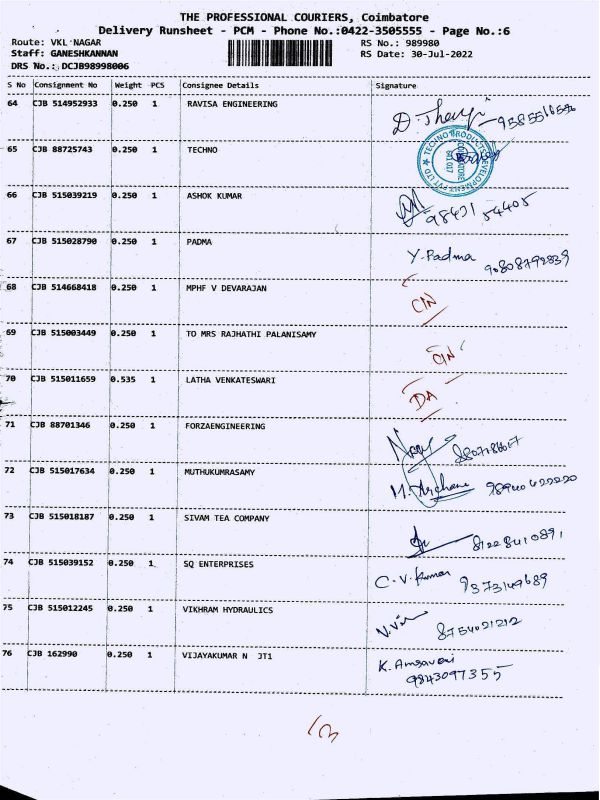 THE PROFESSIONAL COURIERS, Coimbatore
Delivery Runsheet - PCM - Phone No.:0422-3505555 - Page No.:6
Route: VKL NAGAR RS No.: 989980
Staff: GANESHKANNAN RS Date: 30-Jul-2022
DRS No.: DCJB98998006
S No Consignment No Weight PCS Consignee Details Signature
64 CJB 514952933 0.250 1 RAVISA ENGINEERING
65 CJB 88725743 0.250 1 TECHNO
TECHNO PRODUCTS DEVELOPMENT PVT LTD
COIMBATORE
641 017
66 CJB 515039219 0.250 1 ASHOK KUMAR
98431 54405
67 CJB 515028790 0.250 1 PADMA Y.Padma
90808792839
68 CJB 514668418 0.250 1 MPHF V DEVARAJAN
CIN
69 CJB 515003449 0.250 1 TO MRS RAJHATHI PALANISAMY
CIN
70 CJB 515011659 0.535 1 LATHA VENKATESWARI
DA
71 CJB 88701346 0.250 1 FORZAENGINEERING
72 CJB 515017634 0.250 1 MUTHUKUMRASAMY M.Archana
73 CJB 515018187 0.250 1 SIVAM TEA COMPANY
81228410891
74 CJB 515039152 0.250 1 SQ ENTERPRISES C.V.Kumar
9373149689
75 CJB 515012245 0.250 1 VIKHRAM HYDRAULICS
8754021212
76 CJB 162990 0.250 1 VIJAYAKUMAR N JT1 K. Amsaveni
9843097355
13